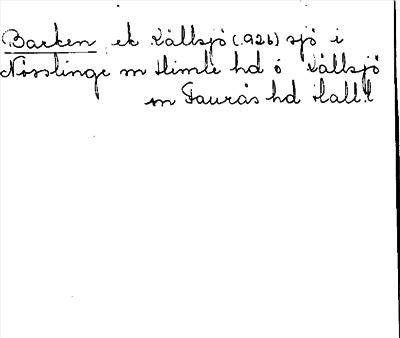 Barken ek Källsjö (.926) sjö i
Nösslinge sn Himle hd ö Källsjö
sn Faurås hd Hall.l